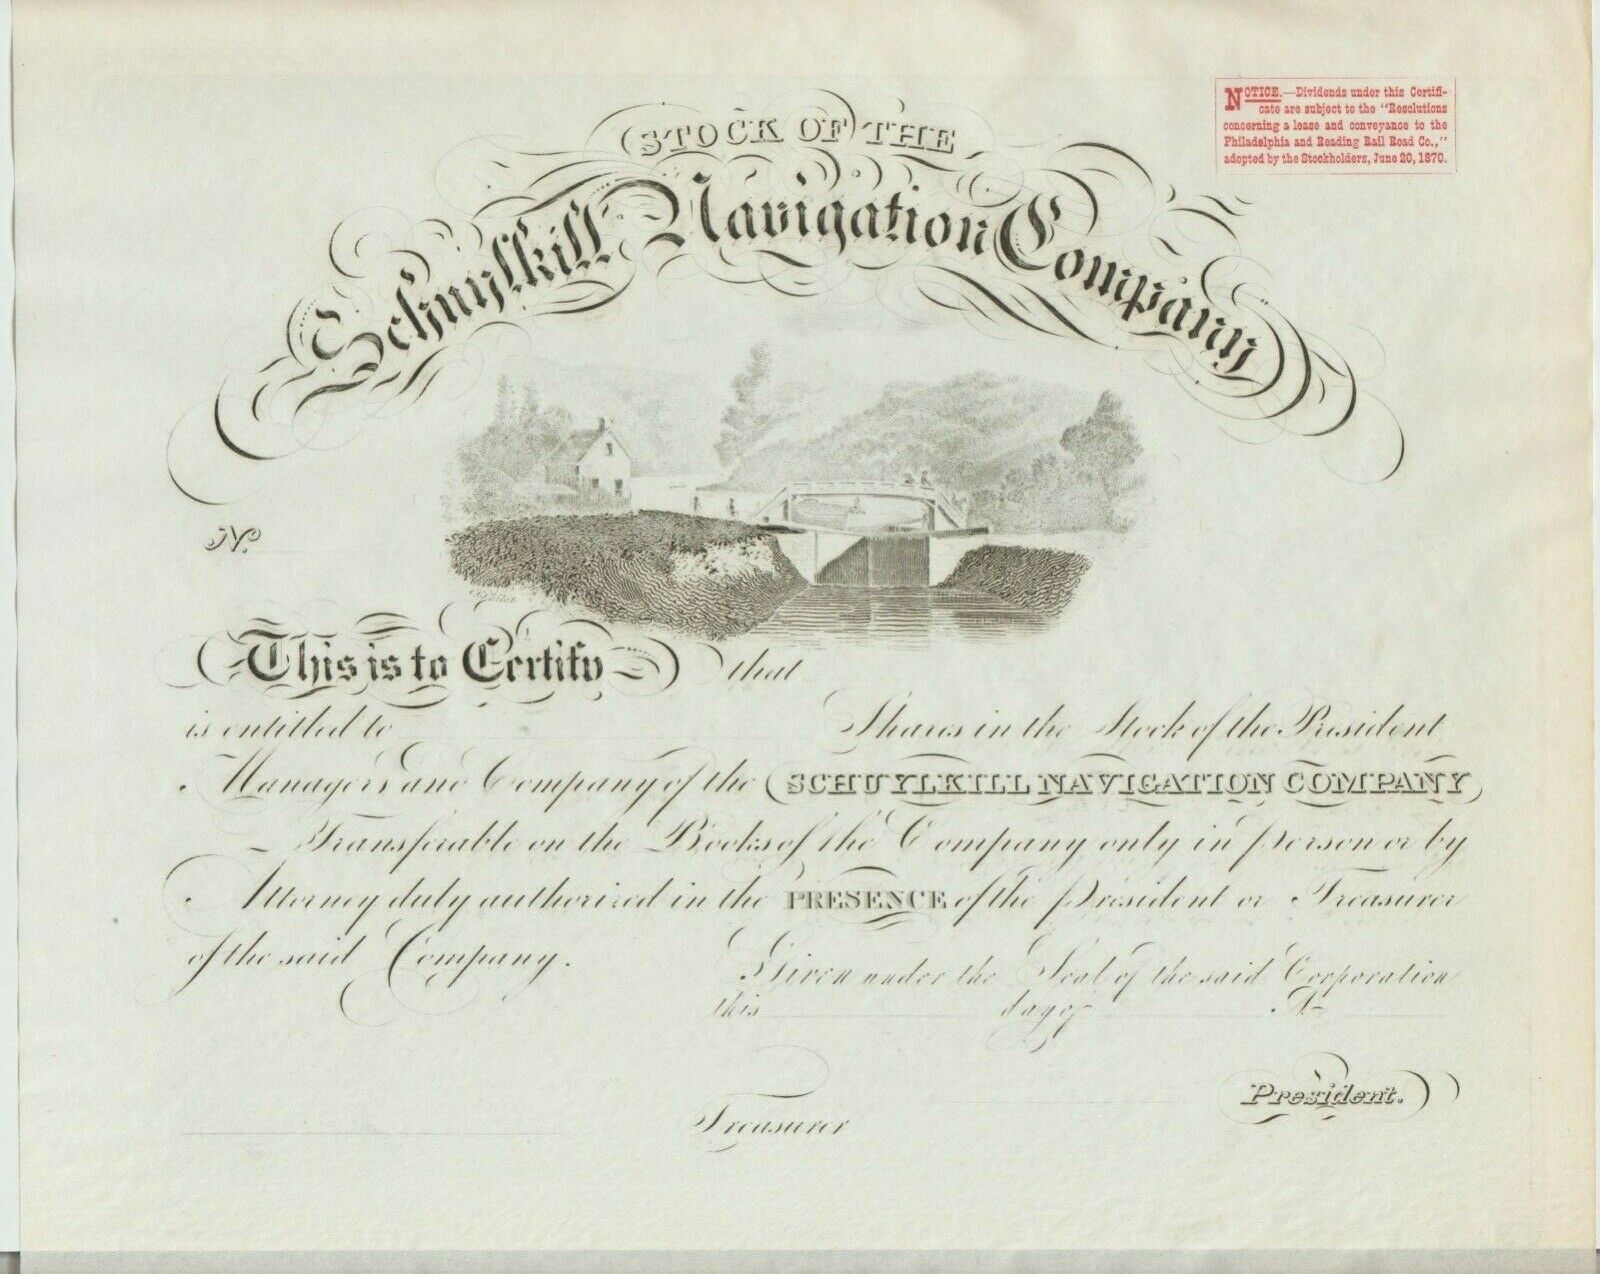 NOTICE.—Dividends under this Certifi-
cate are subject to the "Resolutions
concerning a lease and conveyance to the
Philadelphia and Reading Rail Road Co.,"
adopted by the Stockholders, June 20, 1870.
STOCK OF THE
Schuylkill Navigation Company
No.
This is to Certify that
is entitled to Shares in the Stock of the President
Managers and Company of the SCHUYLKILL NAVIGATION COMPANY
Transferable on the Books of the Company only in person or by
Attorney duly authorized in the PRESENCE of the president or Treasurer
of the said Company. Given under the Seal of the said Corporation
this day of A
Treasurer
President.